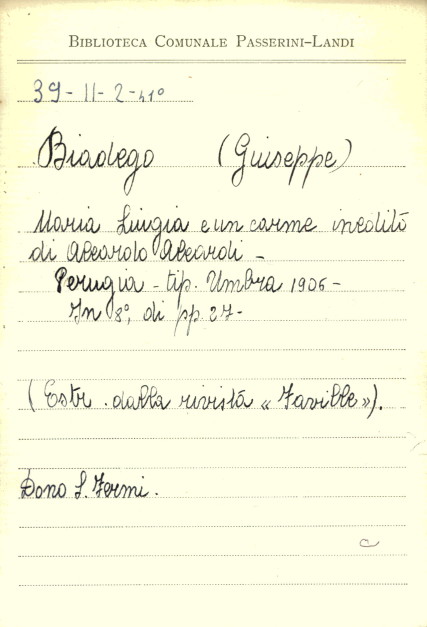 BIBLIOTECA COMUNALE PASSERINI-LANDI
39-11-2-41º
Biadego (Giuseppe)
Maria Luigia e un carme inedito
di Aleardo Aleardi -
Perugia - tip. Umbra 1906 -
In 8º, di pp. 27 -
(Estr. dalla rivista « Faville »).
Dono S. Fermi.
c